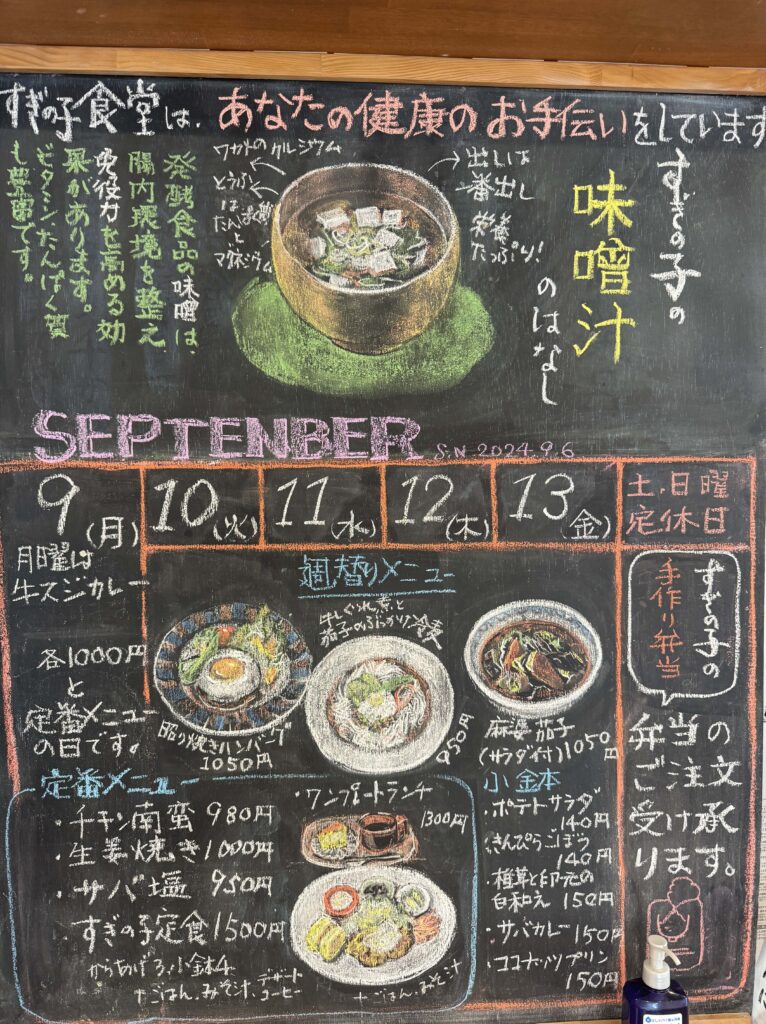 すぎの子食堂は、あなたの健康のお手伝いをしています
すぎの子の
味噌汁
のはなし
出しは
一番出し
栄養
たっぷり!
ワカメの カルシウム
とうふ
は
たんぱく質
と
マグネシウム
発酵食品の味噌は、
腸内環境を整え
免役力を高める効
果があります。
ビタミン、たんぱく質
も豊富です。
SEPTENBER
S.N 2024.9.6
9(月)
10(火)
11(水)
12(木)
13(金)
土、日曜
定休日
月曜は
牛スジカレー
各1000円
と
定番メニュー
の日です。
週替りメニュー
照り焼きハンバーグ
1050円
牛しぐれ煮と
茄子のぶっかけ冷麦
950円
麻婆茄子
(サラダ付)1050円
定番メニュー
・チキン南蛮 980円
・生姜焼き 1000円
・サバ塩 950円
すぎの子定食 1500円
からあげ3、小鉢4
+ごはん、みそ汁、デザート
コーヒー
・ワンプレートランチ
1300円
+ごはん、みそ汁
小鉢
・ポテトサラダ
140円
・きんぴらごぼう
140円
・椎茸と印元の
白和え 150円
・サバカレー 150円
・ココナッツプリン
150円
すぎの子の
手作り弁当
弁当の
ご注文
受け承
ります。